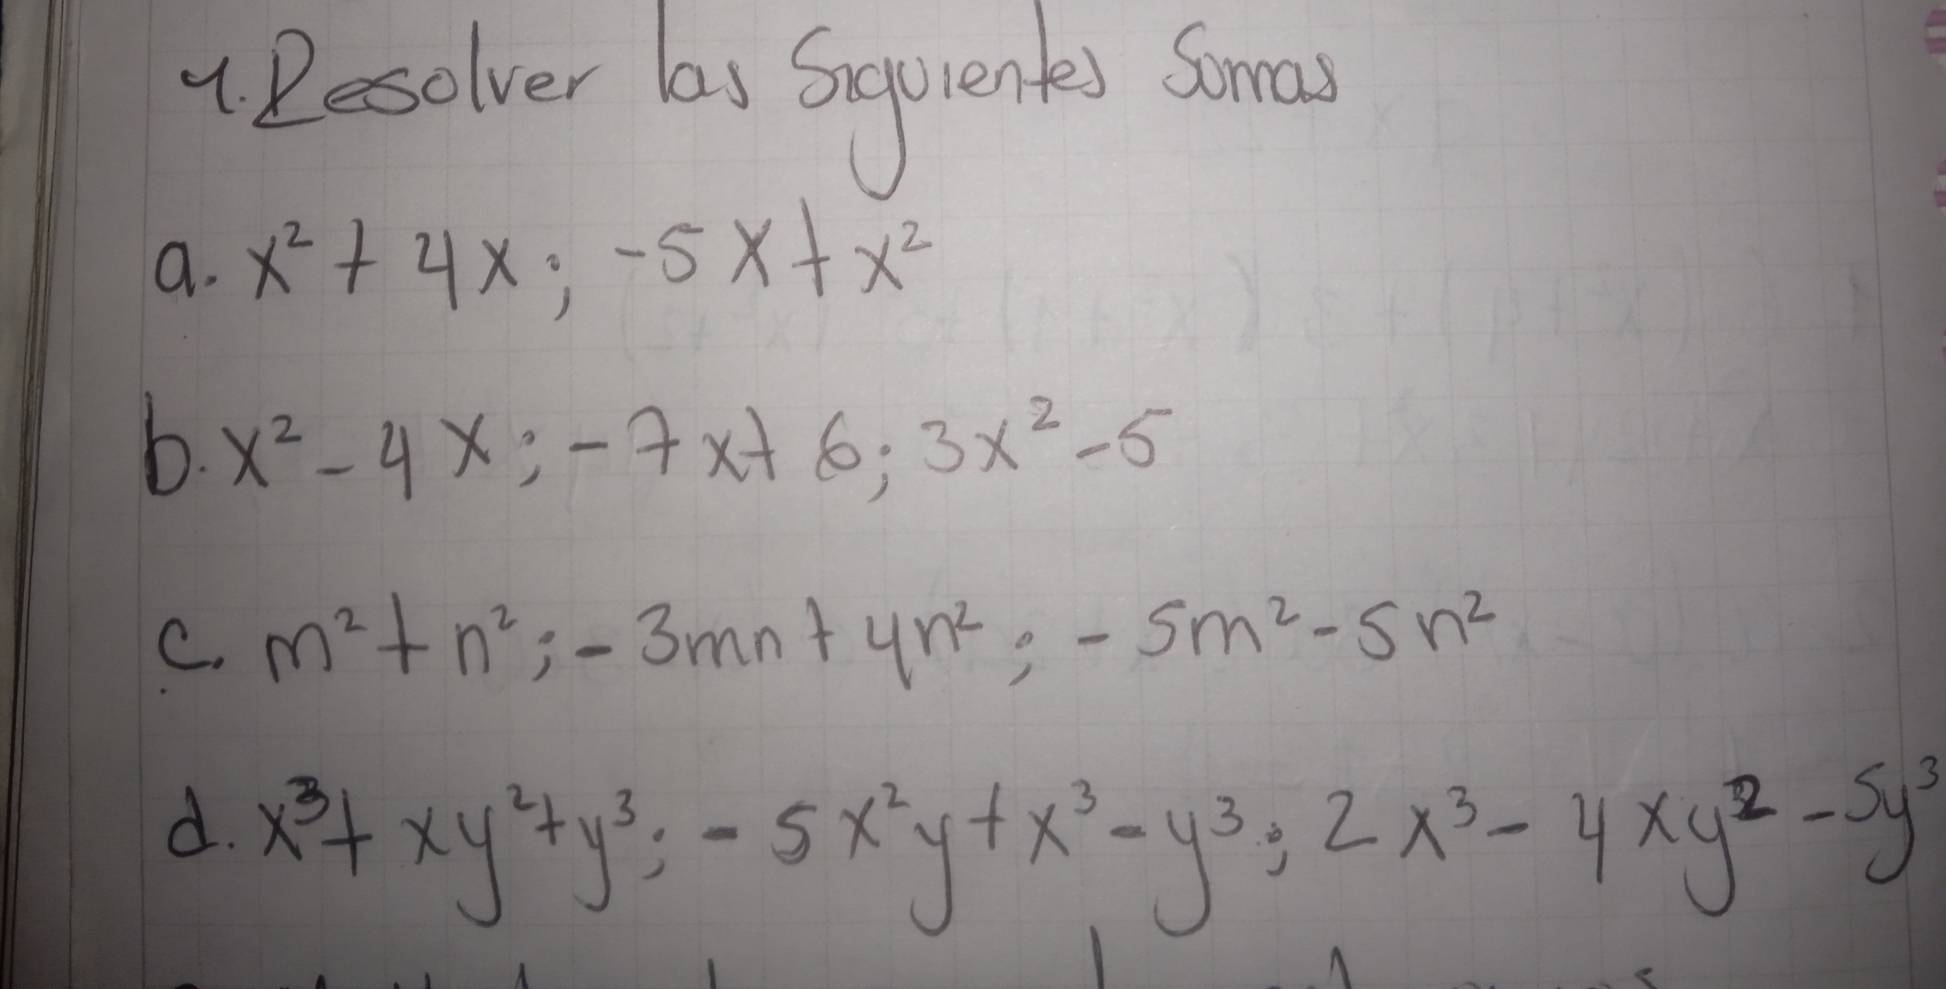 1. Resolver las Siguientes Somas
a. x² + 4x; -5x + x²
b. x² - 4x; -7x + 6; 3x² - 5
c. m² + n²; -3mn + 4n²; -5m² - 5n²
d. x³ + xy² + y³; -5x²y + x³ - y³; 2x³ - 4xy² - 5y³